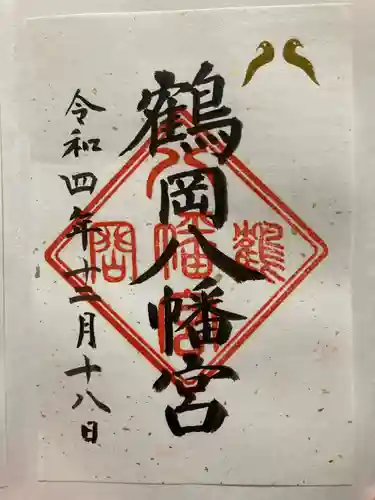 鶴岡八幡宮
令和四年十二月十八日
鶴岡八幡宮